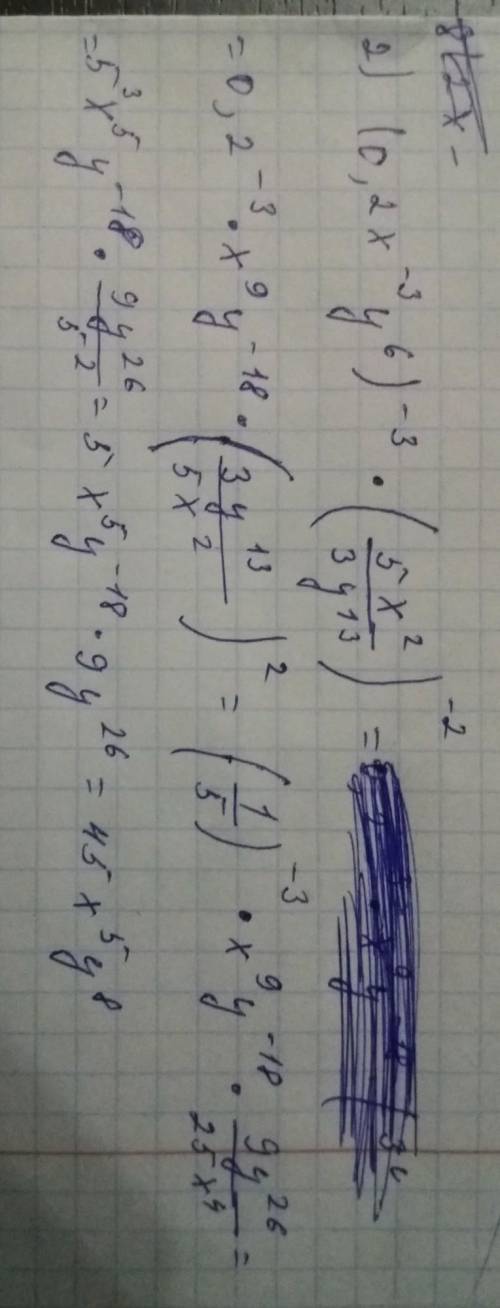 2) (0,2x⁻³y⁶)⁻³ · (5x²/3y¹³)⁻² =
= 0,2⁻³ · x⁹y⁻¹⁸ · (3y¹³/5x²)² = (1/5)⁻³ · x⁹y⁻¹⁸ · 9y²⁶/25x⁴ =
= 5³x⁵y⁻¹⁸ · 9y²⁶/5² = 5x⁵y⁻¹⁸ · 9y²⁶ = 45x⁵y⁸